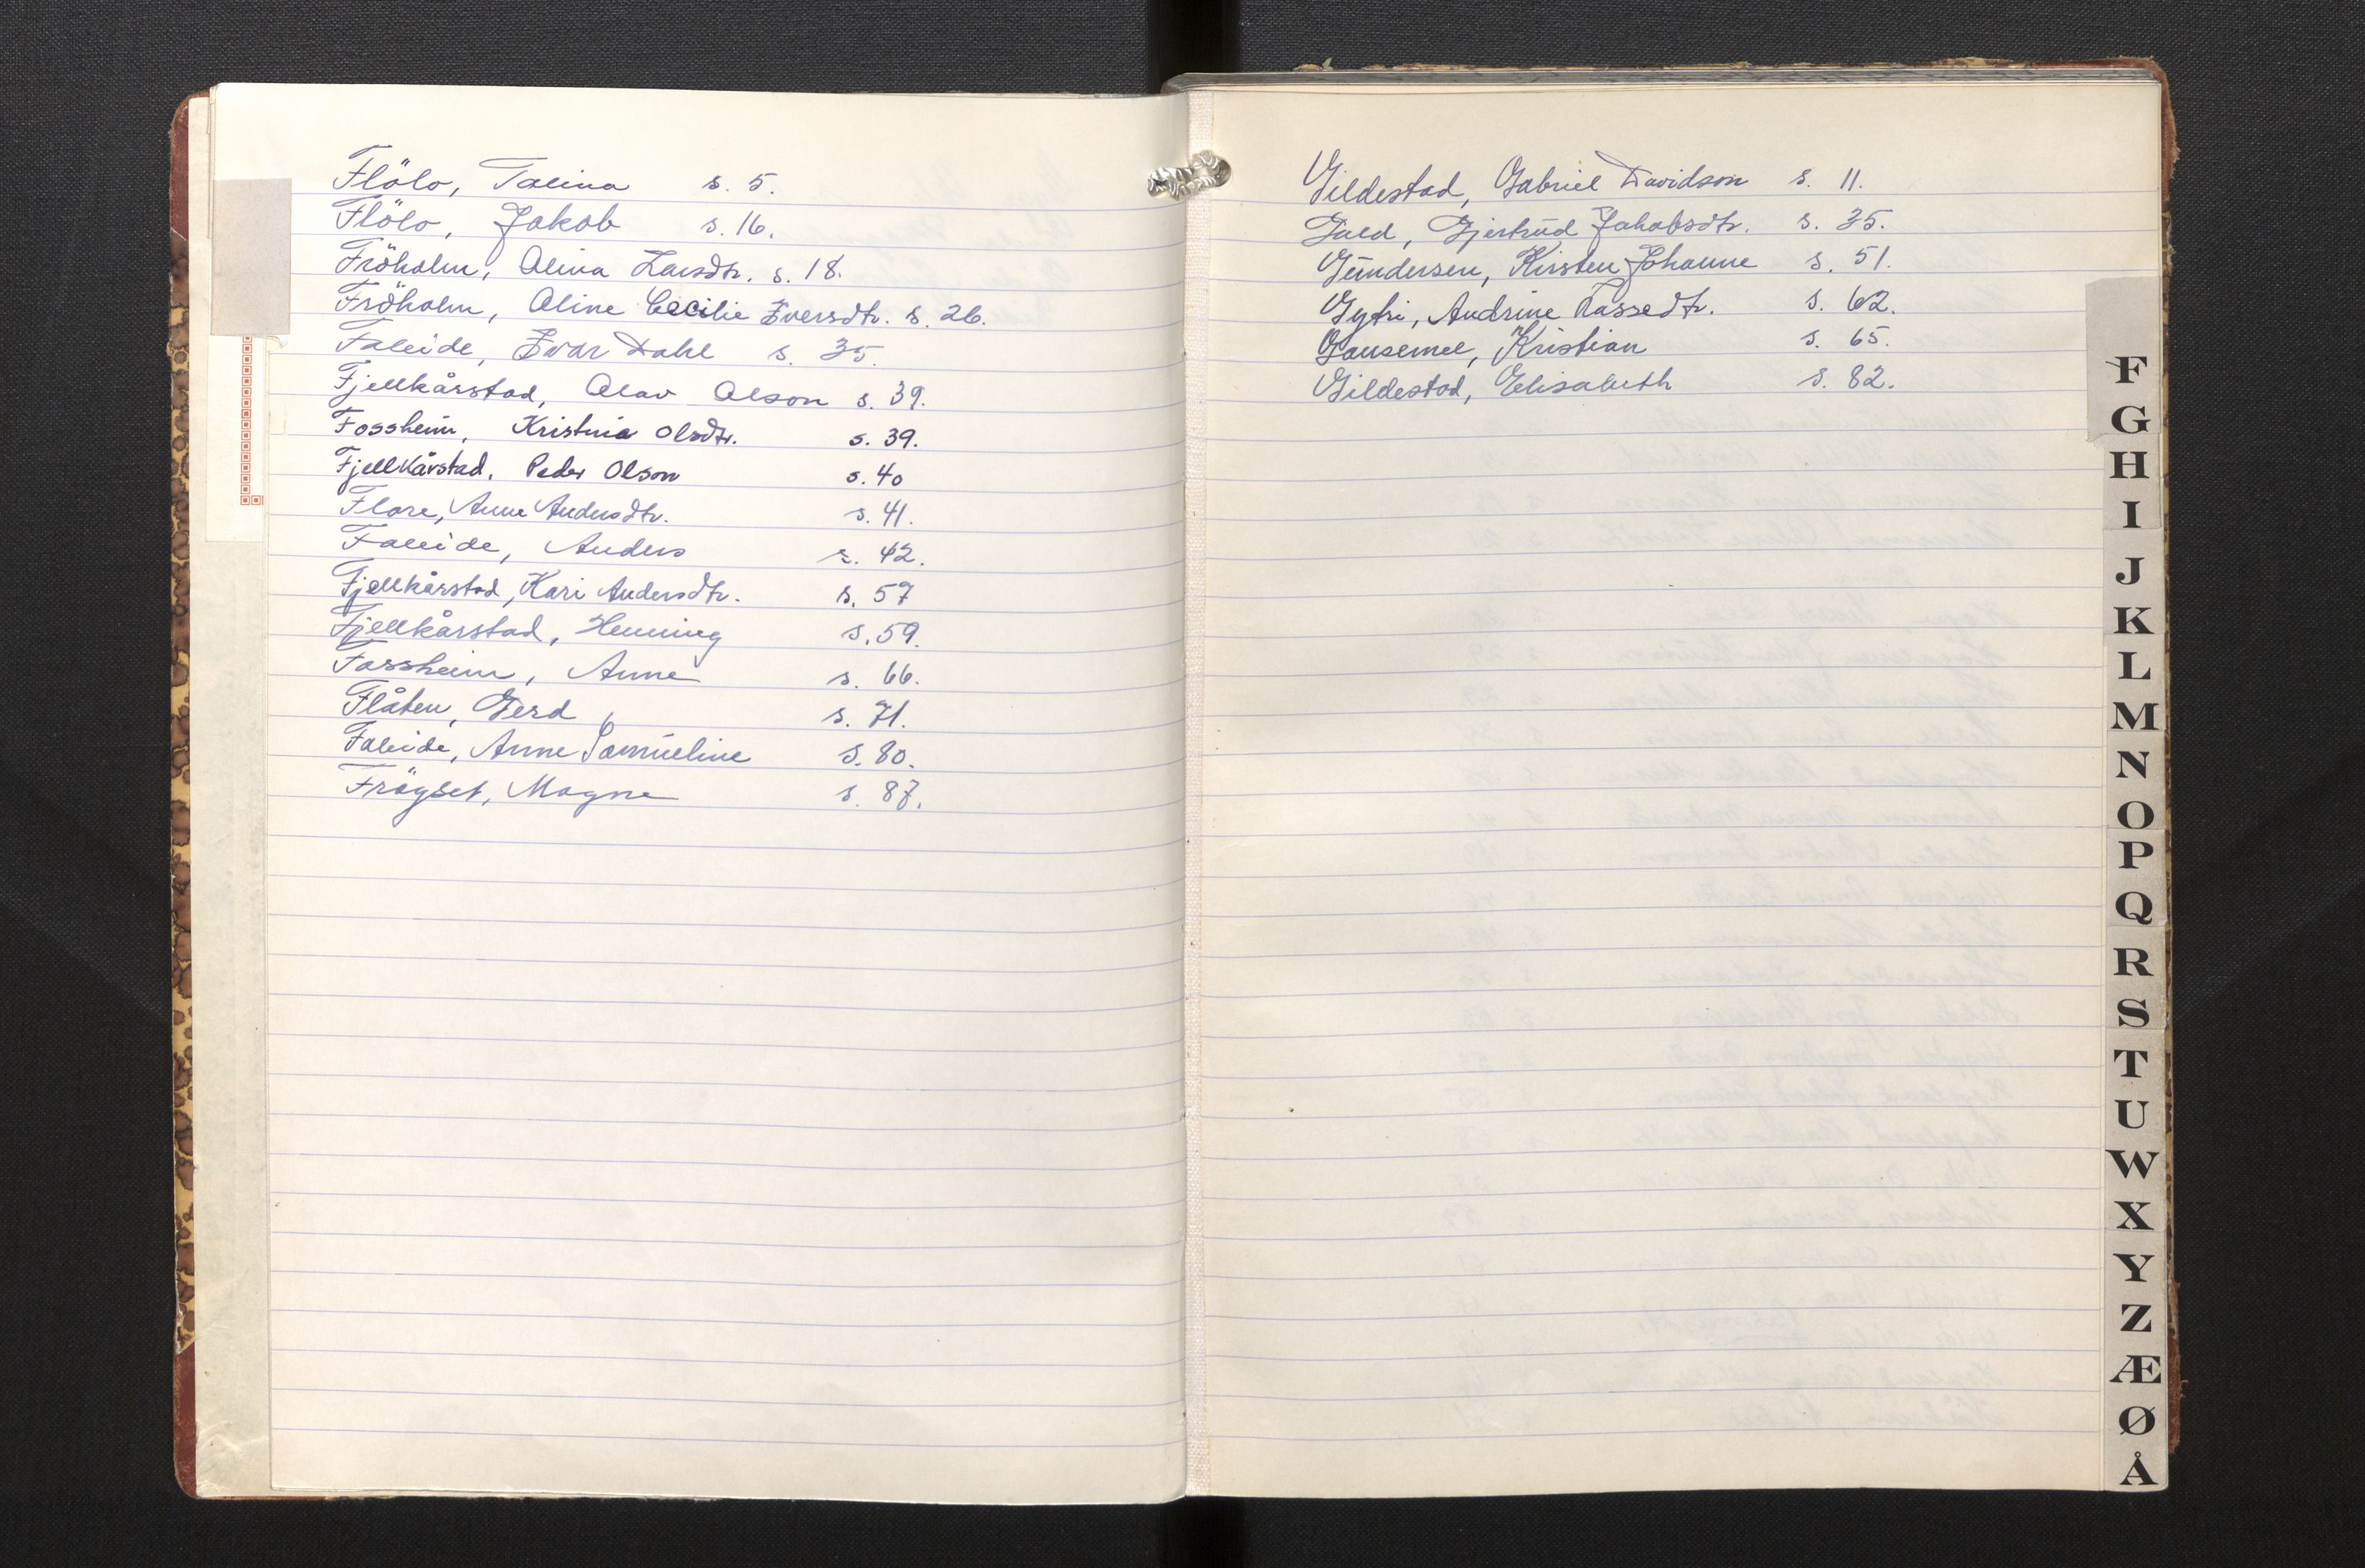 Flölo, Talina s. 5.
Flölo, Jakob s. 16.
Fröholm, Alina Larsdtr. s. 18.
Fröholm, Aline Cecilie Iversdtr. s. 26.
Faleide, Ivar Dahl s. 35
Fjellkårstad, Olav Olson s. 39.
Fossheim, Kristina Olsdtr. s. 39.
Fjellkårstad, Peder Olson s. 40
Flore, Anne Andersdtr. s. 41.
Faleide, Anders s. 42.
Fjellkårstad, Kari Andersdtr. s. 57
Fjellkårstad, Henning s. 59.
Fossheim, Anne s. 66.
Flåten, Gerd s. 71.
Faleide, Anne Samueline s. 80.
Frögset, Magne s. 87.
Gildestad, Gabriel Davidson s. 11.
Gjertrud Jakobsdtr. s. 35.
Gundersen, Kirsten Johanne s. 51.
Gytri, Andrine Lassedtr. s. 62.
Gausemel, Kristian s. 65.
Gildestad, Elisabeth s. 82.
F
G
H
I
J
K
L
M
N
O
P
Q
R
S
T
U
W
X
Y
Z
Æ
Ø
Å